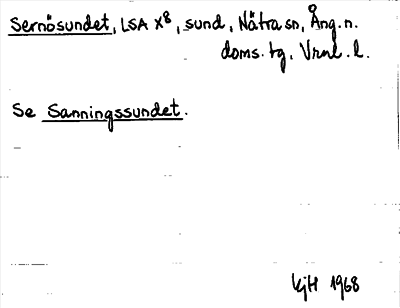 Sernösundet, LSA X8, sund, Nätra sn, Ång. n.
doms. tg, Vrnl. l.
Se Sanningssundet.
kjH 1968